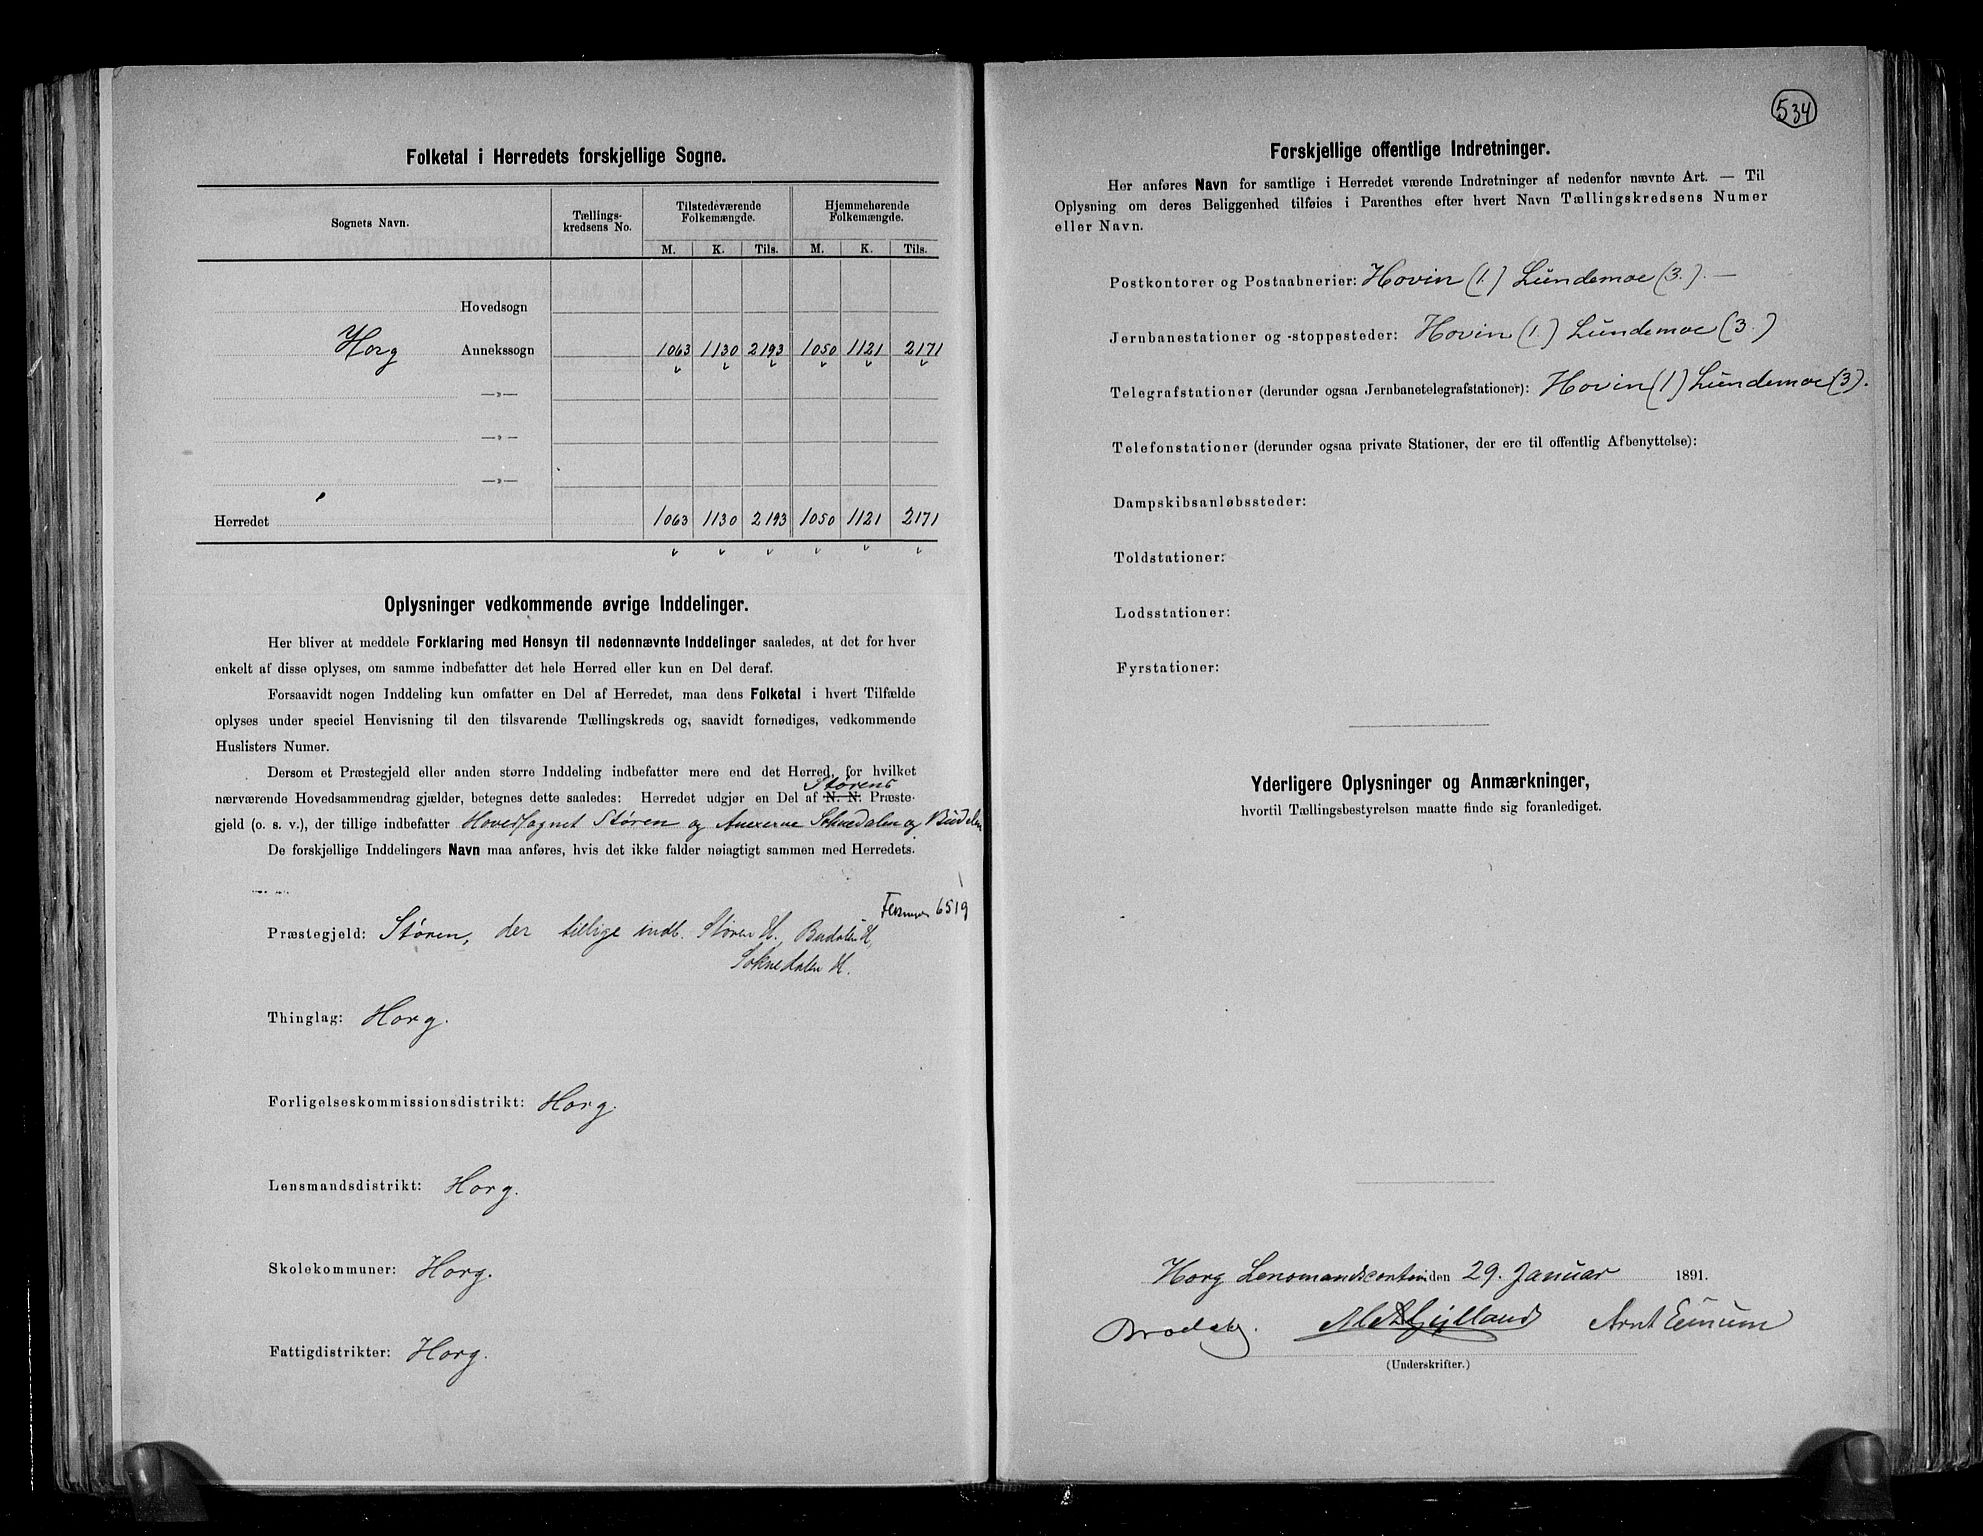 Folketal i Herredets forskjellige Sogne.
Sognets Navn. Tællingskredsens No. Tilstedeværende Folkemængde. Hjemmehørende Folkemængde.
M. K. Tils. M. K. Tils.
Hovedsogn
Horg Annekssogn 1063 1130 2193 1050 1121 2171
—»—
—»—
—»—
Herredet 1063 1130 2193 1050 1121 2171
Oplysninger vedkommende øvrige Inddelinger.
Her bliver at meddele Forklaring med Hensyn til nedennævnte Inddelinger saaledes, at det for hver
enkelt af disse oplyses, om samme indbefatter det hele Herred eller kun en Del deraf.
Forsaavidt nogen Inddeling kun omfatter en Del af Herredet, maa dens Folketal i hvert Tilfælde
oplyses under speciel Henvisning til den tilsvarende Tællingskreds og, saavidt fornødiges, vedkommende
Huslisters Numer.
Dersom et Præstegjeld eller anden større Inddeling indbefatter mere end det Herred, for hvilket
Størens
nærværende Hovedsammendrag gjælder, betegnes dette saaledes: Herredet udgjør en Del af N. N. Præste-
gjeld (o. s. v.), der tillige indbefatter Hovedsognet Støren og Anexerne Soknedalen og Budalen
De forskjellige Inddelingers Navn maa anføres, hvis det ikke falder nøiagtigt sammen med Herredets.
6519
Præstegjeld: Støren, der tillige indb. Støren H., Budalen H,
Soknedalen H.
Thinglag: Horg.
Forligelseskommissionsdistrikt: Horg.
Lensmandsdistrikt: Horg.
Skolekommuner: Horg.
Fattigdistrikter: Horg.
534
Forskjellige offentlige Indretninger.
Her anføres Navn for samtlige i Herredet værende Indretninger af nedenfor nævnte Art. — Til
Oplysning om deres Beliggenhed tilføies i Parenthes efter hvert Navn Tællingskredsens Numer
eller Navn.
Postkontorer og Postaabnerier: Hovin (1.) Lundemoe (3.). —
Jernbanestationer og -stoppesteder: Hovin (1.) Lundemoe (3.)
Telegrafstationer (derunder ogsaa Jernbanetelegrafstationer): Hovin (1) Lundemoe (3).
Telefonstationer (derunder ogsaa private Stationer, der ere til offentlig Afbenyttelse):
Dampskibsanløbssteder:
Toldstationer:
Lodsstationer:
Fyrstationer:
Yderligere Oplysninger og Anmærkninger,
hvortil Tællingsbestyrelsen maatte finde sig foranlediget.
Horg Lensmandscontor den 29. Januar 1891.
Arnt
(Underskrifter.)